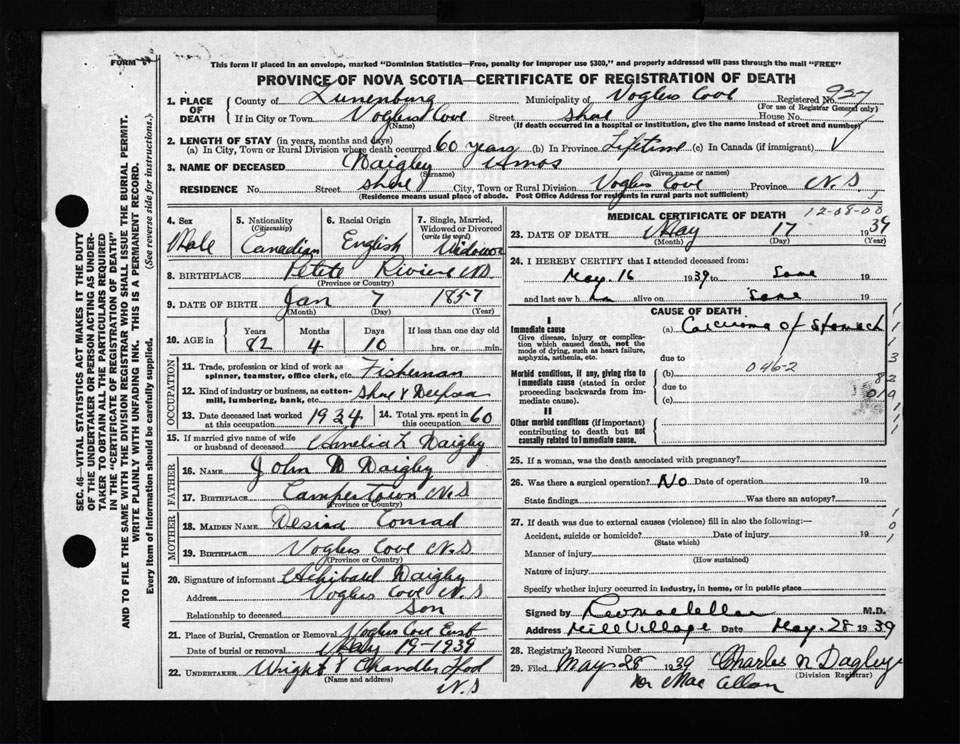 This form if placed in an envelope, marked "Dominion Statistics—Free, penalty for improper use $300," and properly addressed will pass through the mail "FREE"
FORM
PROVINCE OF NOVA SCOTIA—CERTIFICATE OF REGISTRATION OF DEATH
1. PLACE OF DEATH County of Lunenburg Municipality of Voglers Cove Registered No. 927
(For use of Registrar General only)
If in City or Town Voglers Cove Street Shore House No.
(Name) (If death occurred in a hospital or institution, give the name instead of street and number)
2. LENGTH OF STAY (in years, months and days)
(a) In City, Town or Rural Division where death occurred 60 years (b) In Province Lifetime (c) In Canada (if immigrant)
3. NAME OF DECEASED Daigley Amos
(Surname) (Given name or names)
RESIDENCE No. Street Shore City, Town or Rural Division Voglers Cove Province N.S.
(Residence means usual place of abode. Post Office Address for residents in rural parts not sufficient)
4. Sex 5. Nationality (Citizenship) 6. Racial Origin 7. Single, Married, Widowed or Divorced (write the word)
Male Canadian English Widower
8. BIRTHPLACE Petite Riviere N.S.
(Province or Country)
9. DATE OF BIRTH Jan 7 1857
(Month) (Day) (Year)
10. AGE in Years Months Days If less than one day old
82 4 10 hrs. or min.
OCCUPATION
11. Trade, profession or kind of work as spinner, teamster, office clerk, etc. Fisherman
12. Kind of industry or business, as cotton-mill, lumbering, bank, etc. Shore & Deepsea
13. Date deceased last worked at this occupation 1934 14. Total yrs. spent in this occupation 60
15. If married give name of wife or husband of deceased Amelia L Daigley
FATHER
16. NAME John D Daigley
17. BIRTHPLACE Campertown N.S
(Province or Country)
MOTHER
18. MAIDEN NAME Desiad Conrad
19. BIRTHPLACE Voglers Cove N.S
(Province or Country)
20. Signature of informant Achibald Daigley
Address Voglers Cove N.S
Relationship to deceased Son
21. Place of Burial, Cremation or Removal Voglers Cove East
Date of burial or removal May 19-1939
22. UNDERTAKER Wright & Chandler
(Name and address)
N.S
MEDICAL CERTIFICATE OF DEATH 12-08-00
23. DATE OF DEATH May 17 1939
(Month) (Day) (Year)
24. I HEREBY CERTIFY that I attended deceased from:
May. 16 1939 to Same 19
and last saw him alive on same 19
CAUSE OF DEATH
I
Immediate cause (a) Carcinoma of Stomach
Give disease, injury or complication which caused death, not the mode of dying, such as heart failure, asphyxia, asthenia, etc.
due to
Morbid conditions, if any, giving rise to immediate cause (stated in order proceeding backwards from immediate cause). (b) 046-2
due to
(c)
II
Other morbid conditions (if important) contributing to death but not causally related to immediate cause.
25. If a woman, was the death associated with pregnancy?
26. Was there a surgical operation? No Date of operation 19
State findings Was there an autopsy?
27. If death was due to external causes (violence) fill in also the following:—
Accident, suicide or homicide? Date of injury 19
(State which)
Manner of injury
(How sustained)
Nature of injury
Specify whether injury occurred in industry, in home, or in public place
Signed by M.D.
Address Mill Village Date May. 28 1939
28. Registrar's Record Number
29. Filed May 28 1939 Charles N Dagley
(Division Registrar)
Mac
SEC. 46—VITAL STATISTICS ACT MAKES IT THE DUTY
OF THE UNDERTAKER OR PERSON ACTING AS UNDER-
TAKER "TO OBTAIN ALL THE PARTICULARS REQUIRED
IN THE "CERTIFICATE OF REGISTRATION OF DEATH"
AND TO FILE THE SAME WITH THE DIVISION REGISTRAR WHO SHALL ISSUE THE BURIAL PERMIT.
WRITE PLAINLY WITH UNFADING INK. THIS IS A PERMANENT RECORD.
Every item of information should be carefully supplied. (See reverse side for instructions.)